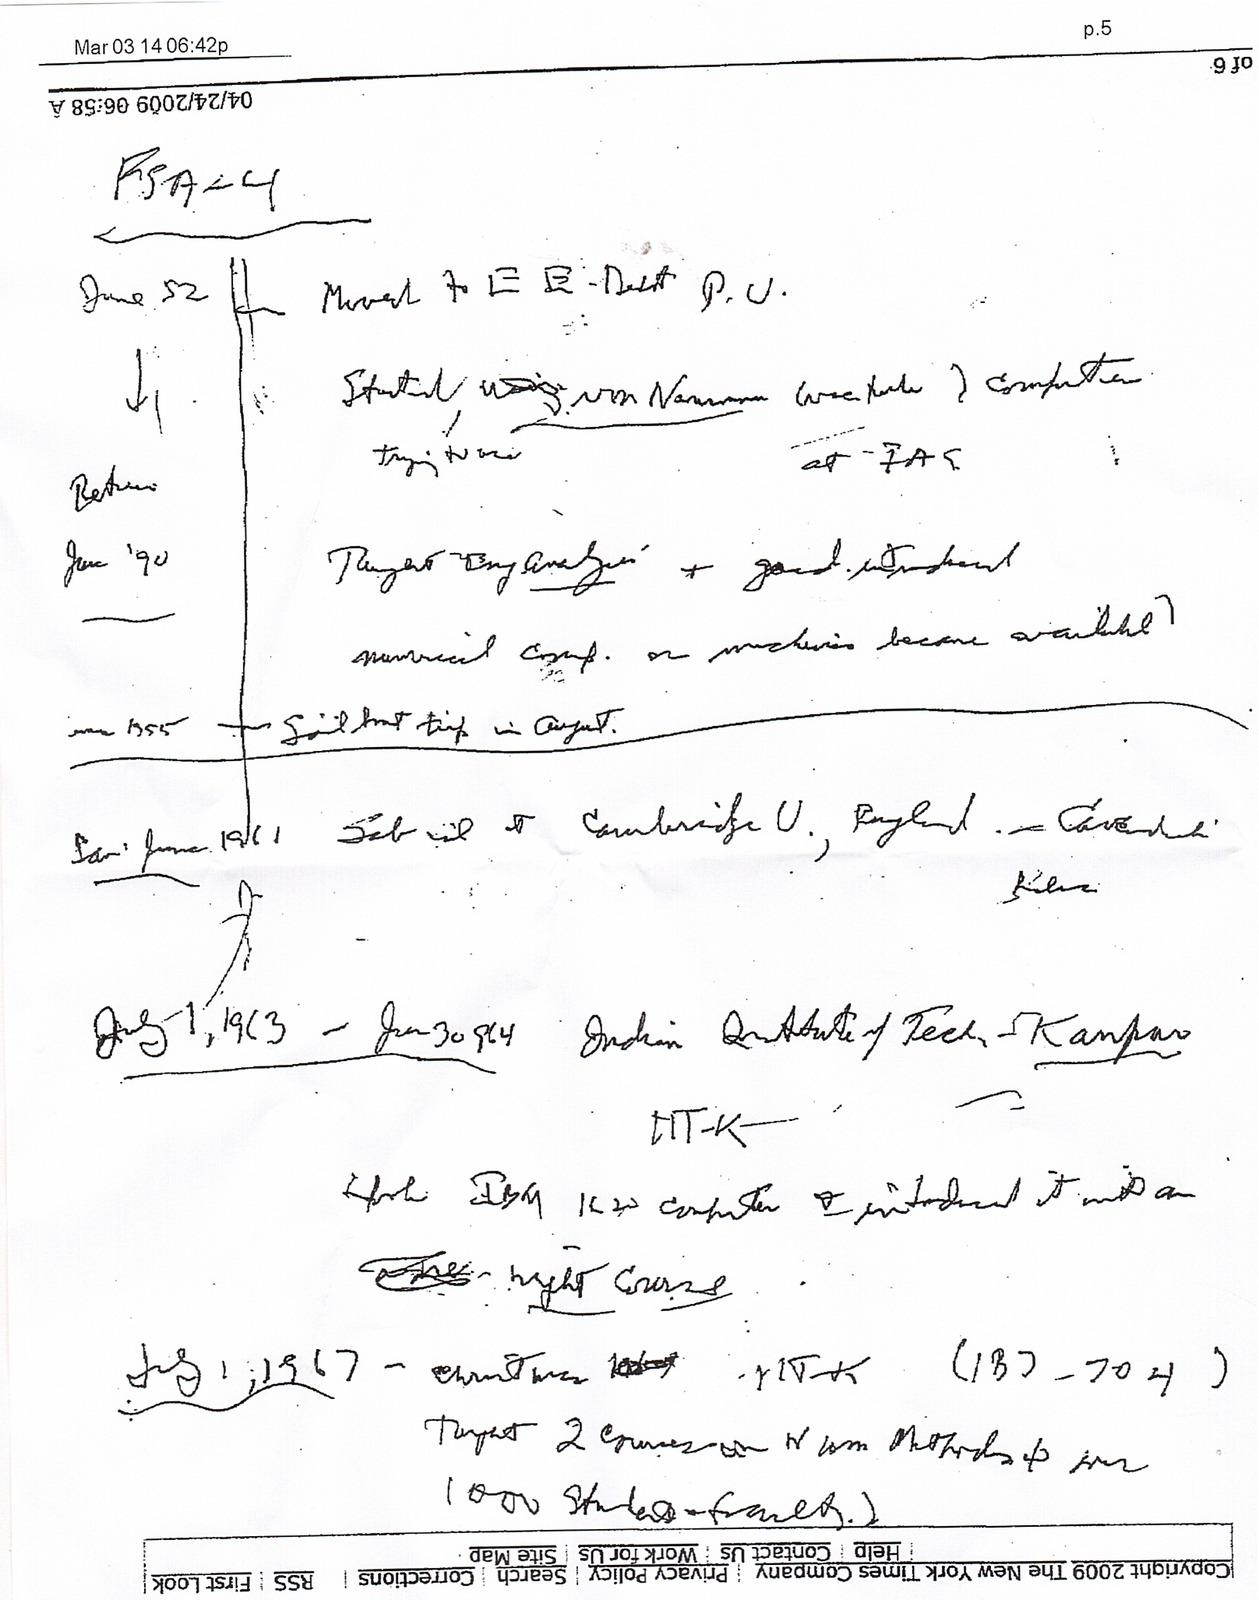 Mar 03 14 06:42p
p.5
of 6
04/24/2009 06:58 A
FSA-4
June 52 Moved to E E Dept P.U.
Started using von Neumann ) computer
trying to use at IAS
Return
June '90 Taught Eng Analysis + introduced
numerical comp. machines became available)
1955 Sail boat trip in August.
June 1961 Sabbatical at Cambridge U., England - Cavendish
July 1, 1963 - Jun 30 964 Indian Institute of Tech. - Kanpur
IIT-K
IBM 1620 computer & introduced it into an
night course
July 1, 1967 - christmas IIT-K (IB7-704)
Taught 2 Courses on Num Methods to over
1000 Students - faculty.)
Help Contact Us Work for Us Site Map
Copyright 2009 The New York Times Company Privacy Policy Search Corrections RSS First Look